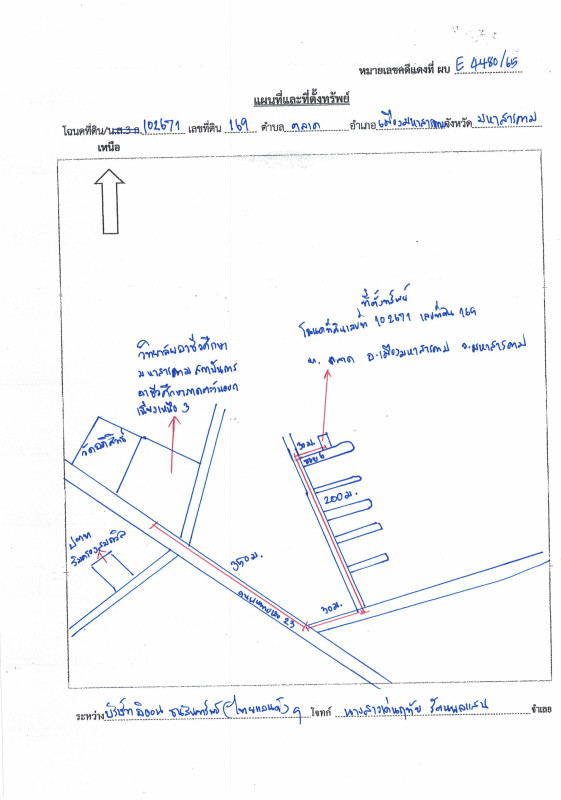 หมายเลขคดีแดงที่ ผบ E 4480/65
แผนที่และที่ตั้งทรัพย์
โฉนดที่ดิน/น.ส.3 ก 102671 เลขที่ดิน 169 ตำบล ตลาด อำเภอ เมืองมหาสารคาม จังหวัด มหาสารคาม
เหนือ
ที่ตั้งทรัพย์
โฉนดที่ดินเลขที่ 102671 เลขที่ดิน 169
ต. ตลาด อ.เมืองมหาสารคาม จ.มหาสารคาม
วิทยาลัยอาชีวศึกษา
มหาสารคาม สถาบันการ
อาชีวศึกษาภาคตะวันออก
เฉียงเหนือ 3
30 ม.
ซอย 6
200 ม.
ปตท
350 ม.
30 ม.
23
ระหว่าง บริษัทอิออน ธนสินทรัพย์ (ไทยแลนด์) ฯ โจทก์ นางสาว จำเลย